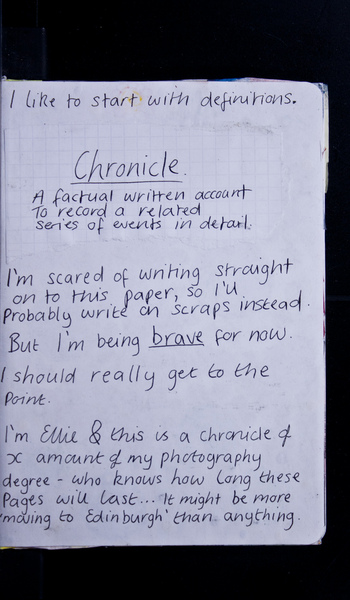 I like to start with definitions.
Chronicle.
A factual written account
To record a related
series of events in detail.
I'm scared of writing straight
on to this paper, so I'll
Probably write on scraps instead.
But I'm being brave for now.
I should really get to the
Point.
I'm Ellie & this is a chronicle of
x amount of my photography
degree - who knows how long these
Pages will last... It might be more
'moving to Edinburgh' than anything.